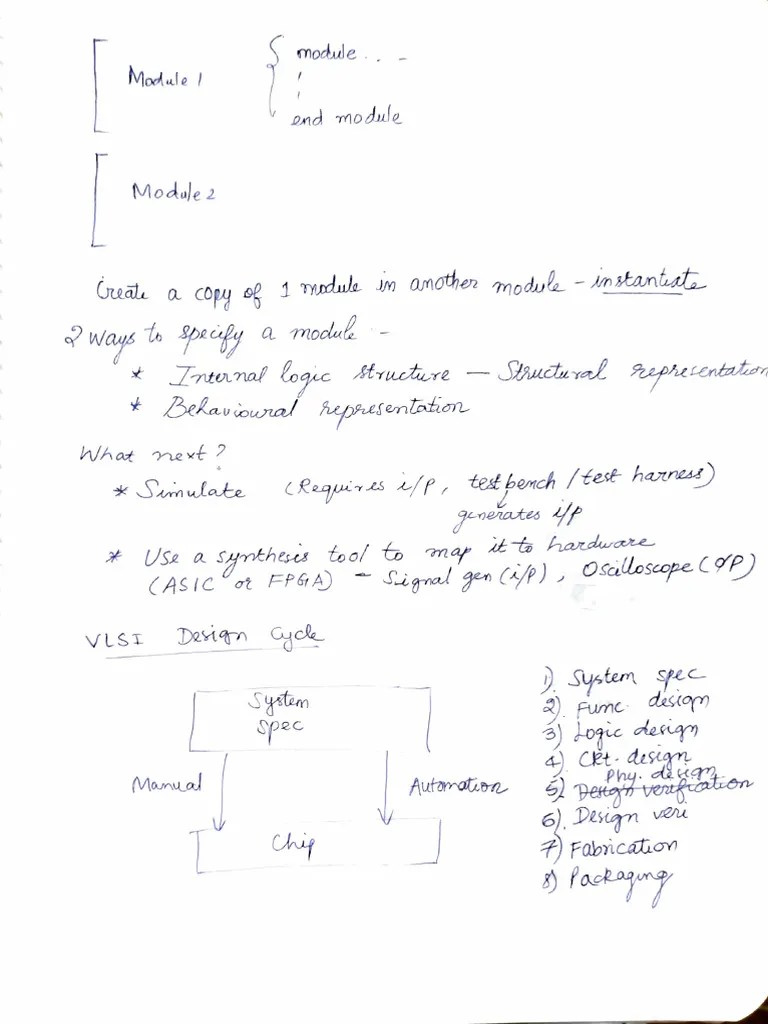 Module 1
module . . -
end module
Module 2
Create a copy of 1 module in another module - instantiate
2 Ways to specify a module -
* Internal logic structure — Structural representation
* Behavioural representation
What next?
* Simulate (Requires i/p, test bench / test harness)
generates i/p
* Use a synthesis tool to map it to hardware
(ASIC or FPGA) - Signal gen (i/p), Oscilloscope (o/p)
VLSI Design Cycle
System
spec
Manual
Automation
Chip
1) System spec
2) Func. design
3) Logic design
4) Ckt. design
Phy. design
5) Design verification
6) Design veri
7) Fabrication
8) Packaging